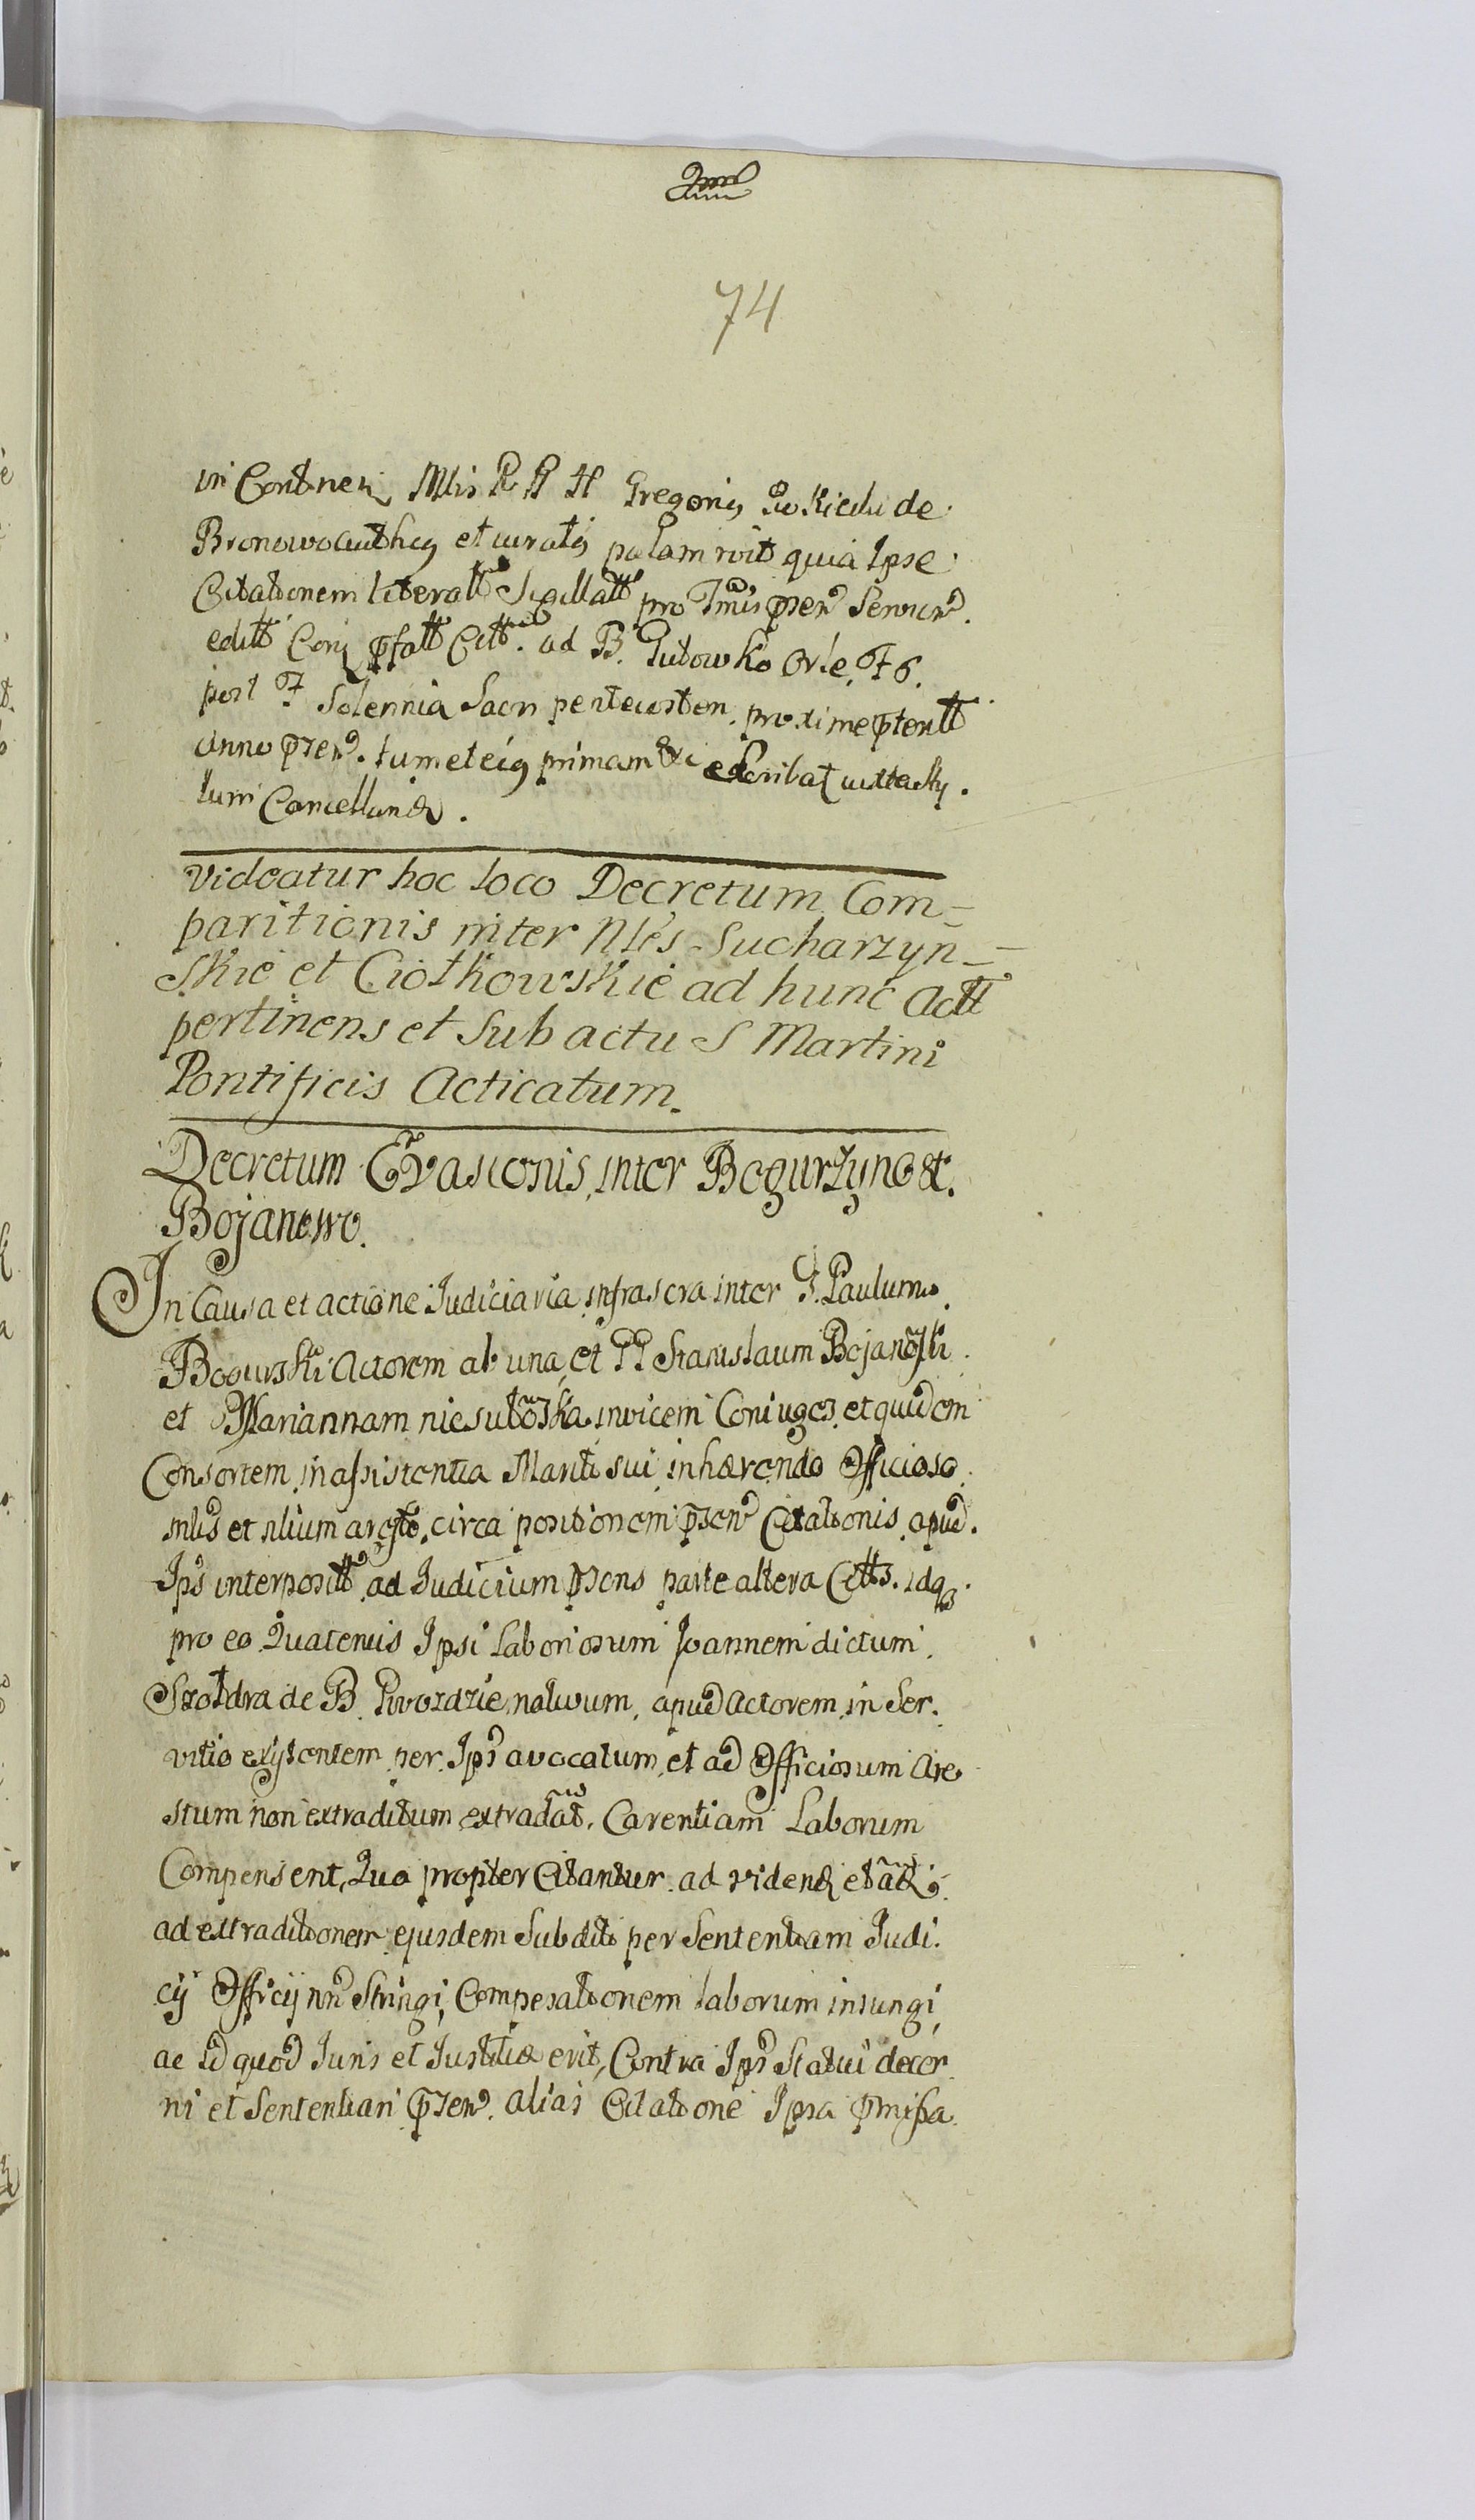 74
in Contnen Mlis R R H Gregorius de
Bronowo authcus et iuratus palam roit quia Ipse
Citationem literatt Sigillatt pro Tmis pnsen
editt Conq pfatt Citt. ad B. Gutowko Orle. F 6.
post F Solennia Sacri pentecosten. proxime ptentt
anno psen. tum et eiq primam &c escribat iuxta sty.
lum Cancelland.
Videatur hoc loco Decretum Com-
paritionis inter Nles Sucharzyn-
skie et Ciotkowskie ad hunc Actt
pertinens et Sub actu S Martini
Pontificis Acticatum.
Decretum Evasionis, inter Bogurzyno &.
Bojanowo.
In Causa et actione Judiciaria infrascra inter G. Paulum
Bogurski Actorem ab una, et PP Stanislaum Bojanoski
et Mariannam niesutoska invicem Coniuges, et quidem
Consortem in assistentia Mariti sui, inhærendo Officioso
et aresto, circa positionem psen Citationis, apud.
Ips interpositt, ad Judicium psens parte altera Citts. idq3.
pro eo Quatenus Ipsi Laboriosum Joannem dictum
Szoldra de B. Gwozdzie, nativum, apud Actorem in Ser.
vitio existentem per Ips avocatum, et ad Officiosum Are
stum non extraditum extradāt, Carentiam Laborum
Compensent, Qua propter Citantur ad vidend et aud;
ad extraditionem ejusdem Subditi per Sententiam Judi.
cij Officij nri Stringi, Compesationem laborum iniungi,
ac id quod Juris et Justitiæ erit, Contra Ips Statui decer
ni et Sententiari psen. alias Citatione Ipsa pmissa